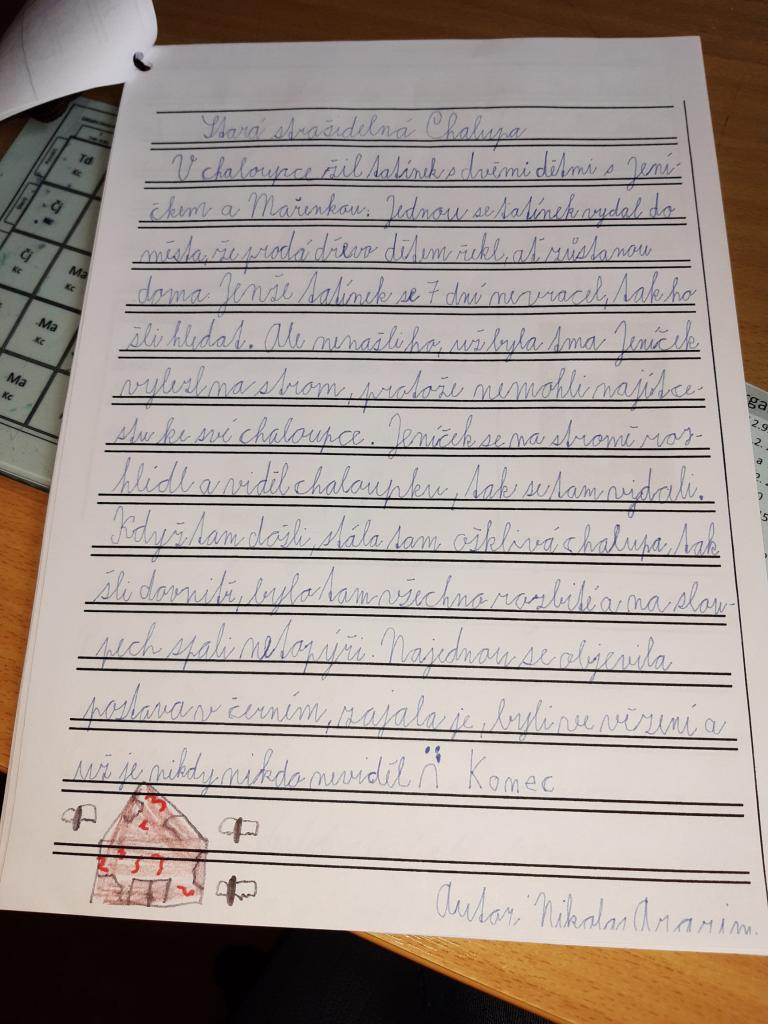 Stará strašidelná Chalupa
V chaloupce žil tatínek s dvěmi dětmi s Jení-
čkem a Mařenkou. Jednou se tatínek vydal do
města, že prodá dřevo dětem řekl, ať zůstanou
doma. Jenže tatínek se 7 dní nevracel, tak ho
šli hledat. Ale nenašli ho, už byla tma Jeníček
vylezl na strom, protože nemohli najít ce-
stu ke své chaloupce. Jeníček se na stromě roz-
hlídl a viděl chaloupku, tak se tam vydali.
Když tam došli, stála tam ošklivá chalupa, tak
šli dovnitř, bylo tam všechno rozbité a na slou-
pech spali netopýři. Najednou se objevila
postava v černém, zajala je, byli ve vězení a
už je nikdy nikdo neviděl Konec
Autor: Nikolas
Td
Kc
Čj
Čj
Kc
Ma
Kc
Ma
Kc